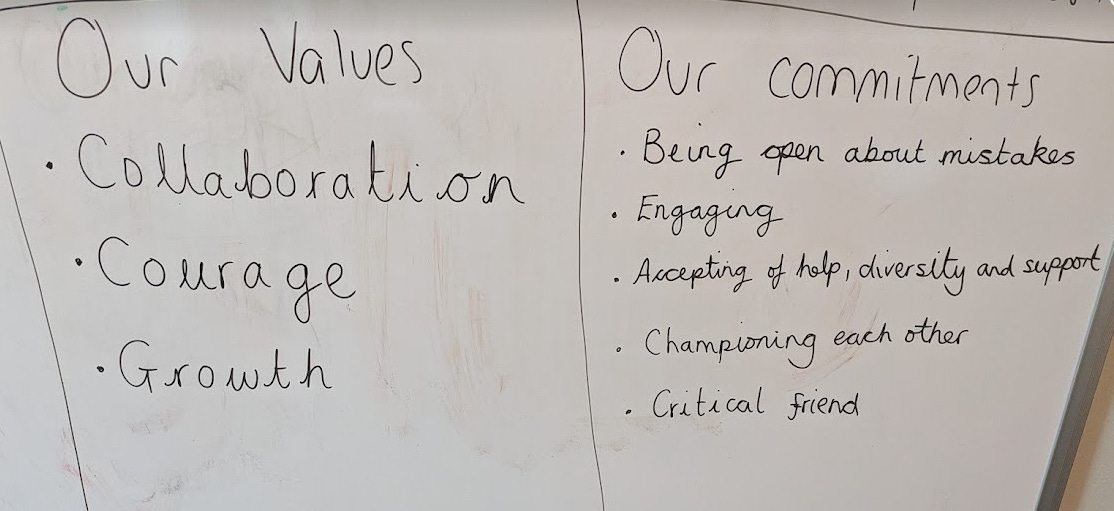 Our Values
· Collaboration
· Courage
· Growth
Our commitments
· Being open about mistakes
· Engaging
· Accepting of help, diversity and support
· Championing each other
· Critical friend